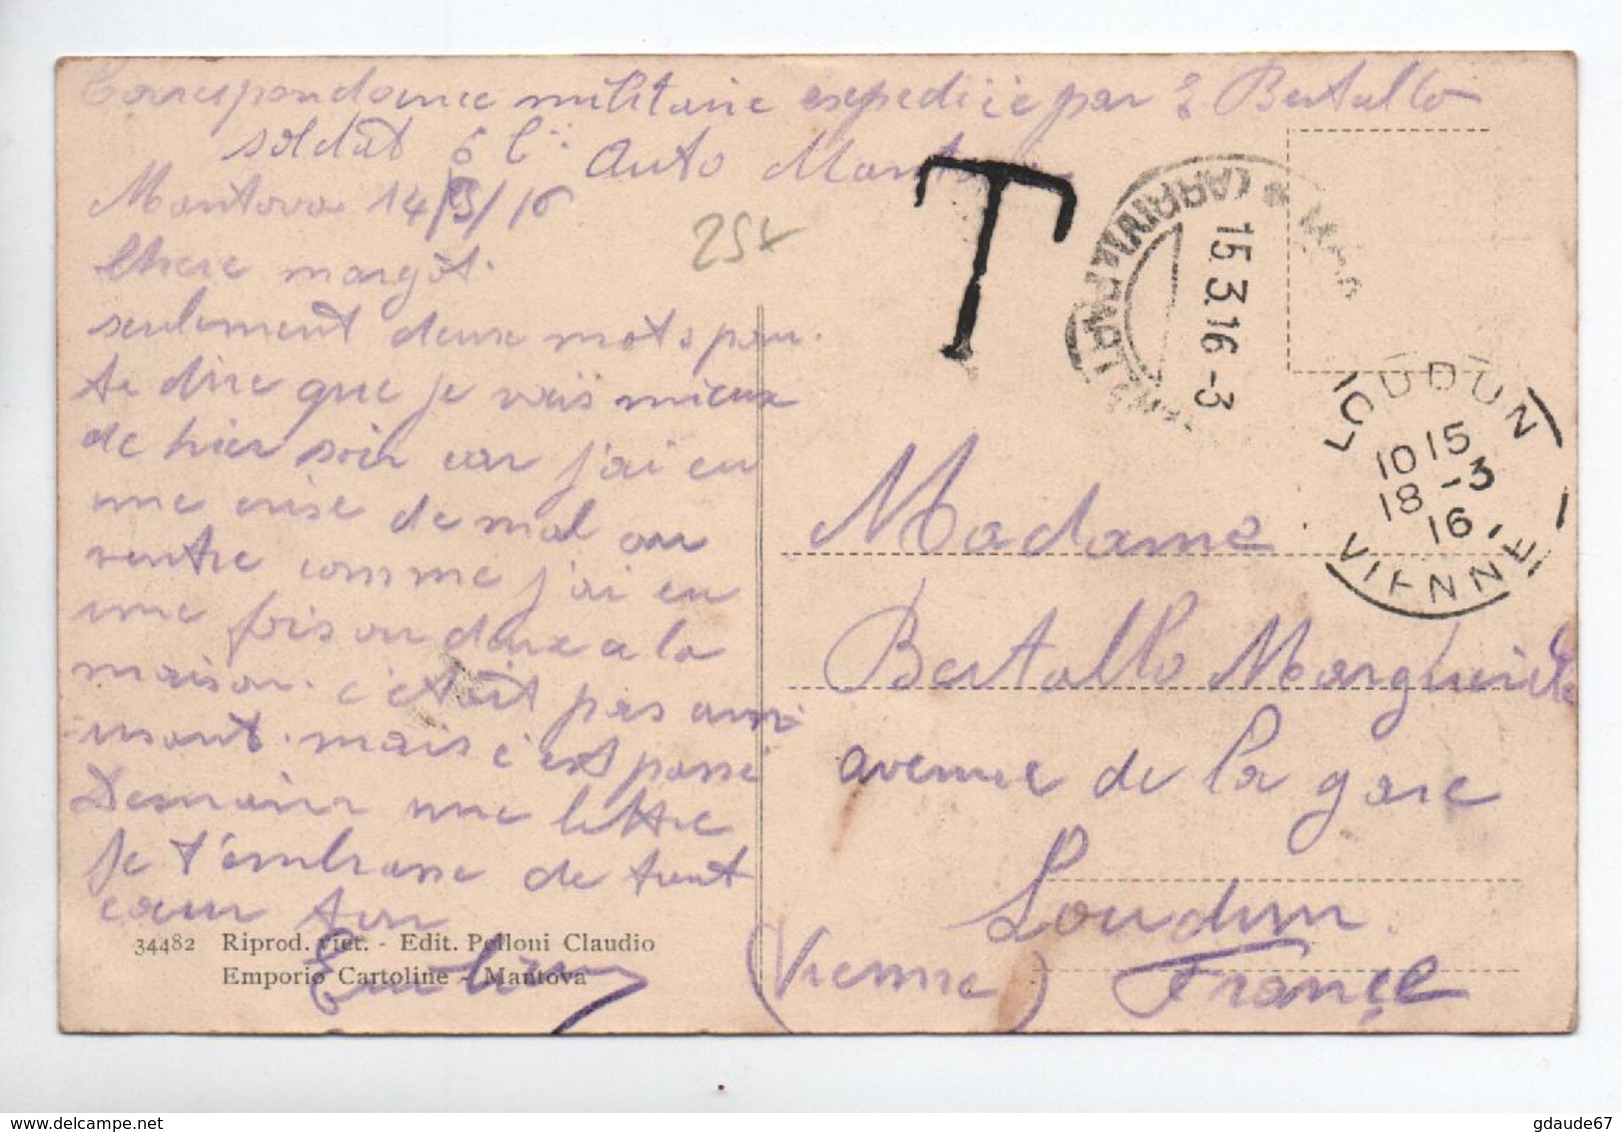 Correspondance militaire expediée par E Bertallo
soldat 6 C.ie Auto Mantova
Mantova 14/3/16
25x
Chere margot.
seulement deux mots pour
te dire que je vais mieux
de hier soir car j'ai eu
une crise de mal au
ventre comme j'ai eu
une fois ou deux a la
maison. c'etait pas amu
usant. mais c'est passé
Demain une lettre
je t'embrasse de tout
coeur ton
34482 Riprod. viet. - Edit. Pelloni Claudio
Emporio Cartoline - Mantova
T
(ARRIVI E PARTENZE)
15.3.16-3
LOUDUN
10 15
18 -3
16
VIENNE
Madame
Bertallo Marguerite
avenue de la gare
Loudun
(Vienne) France
gdaude67